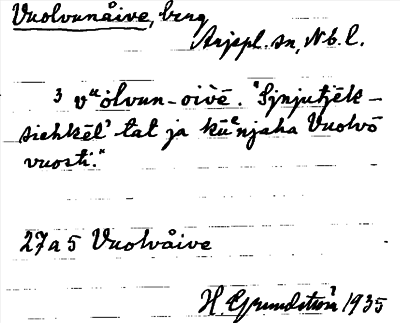 Vuolvunåive, berg
Arjepl. sn, Nb. l.
3 vᵘolvun-oivē. "Sjnjutjēk-
siehkēl' tat ja kūᵉnjaha Vuolvō
vuosti."
27a5 Vuolvåive
H. Grundström 1935